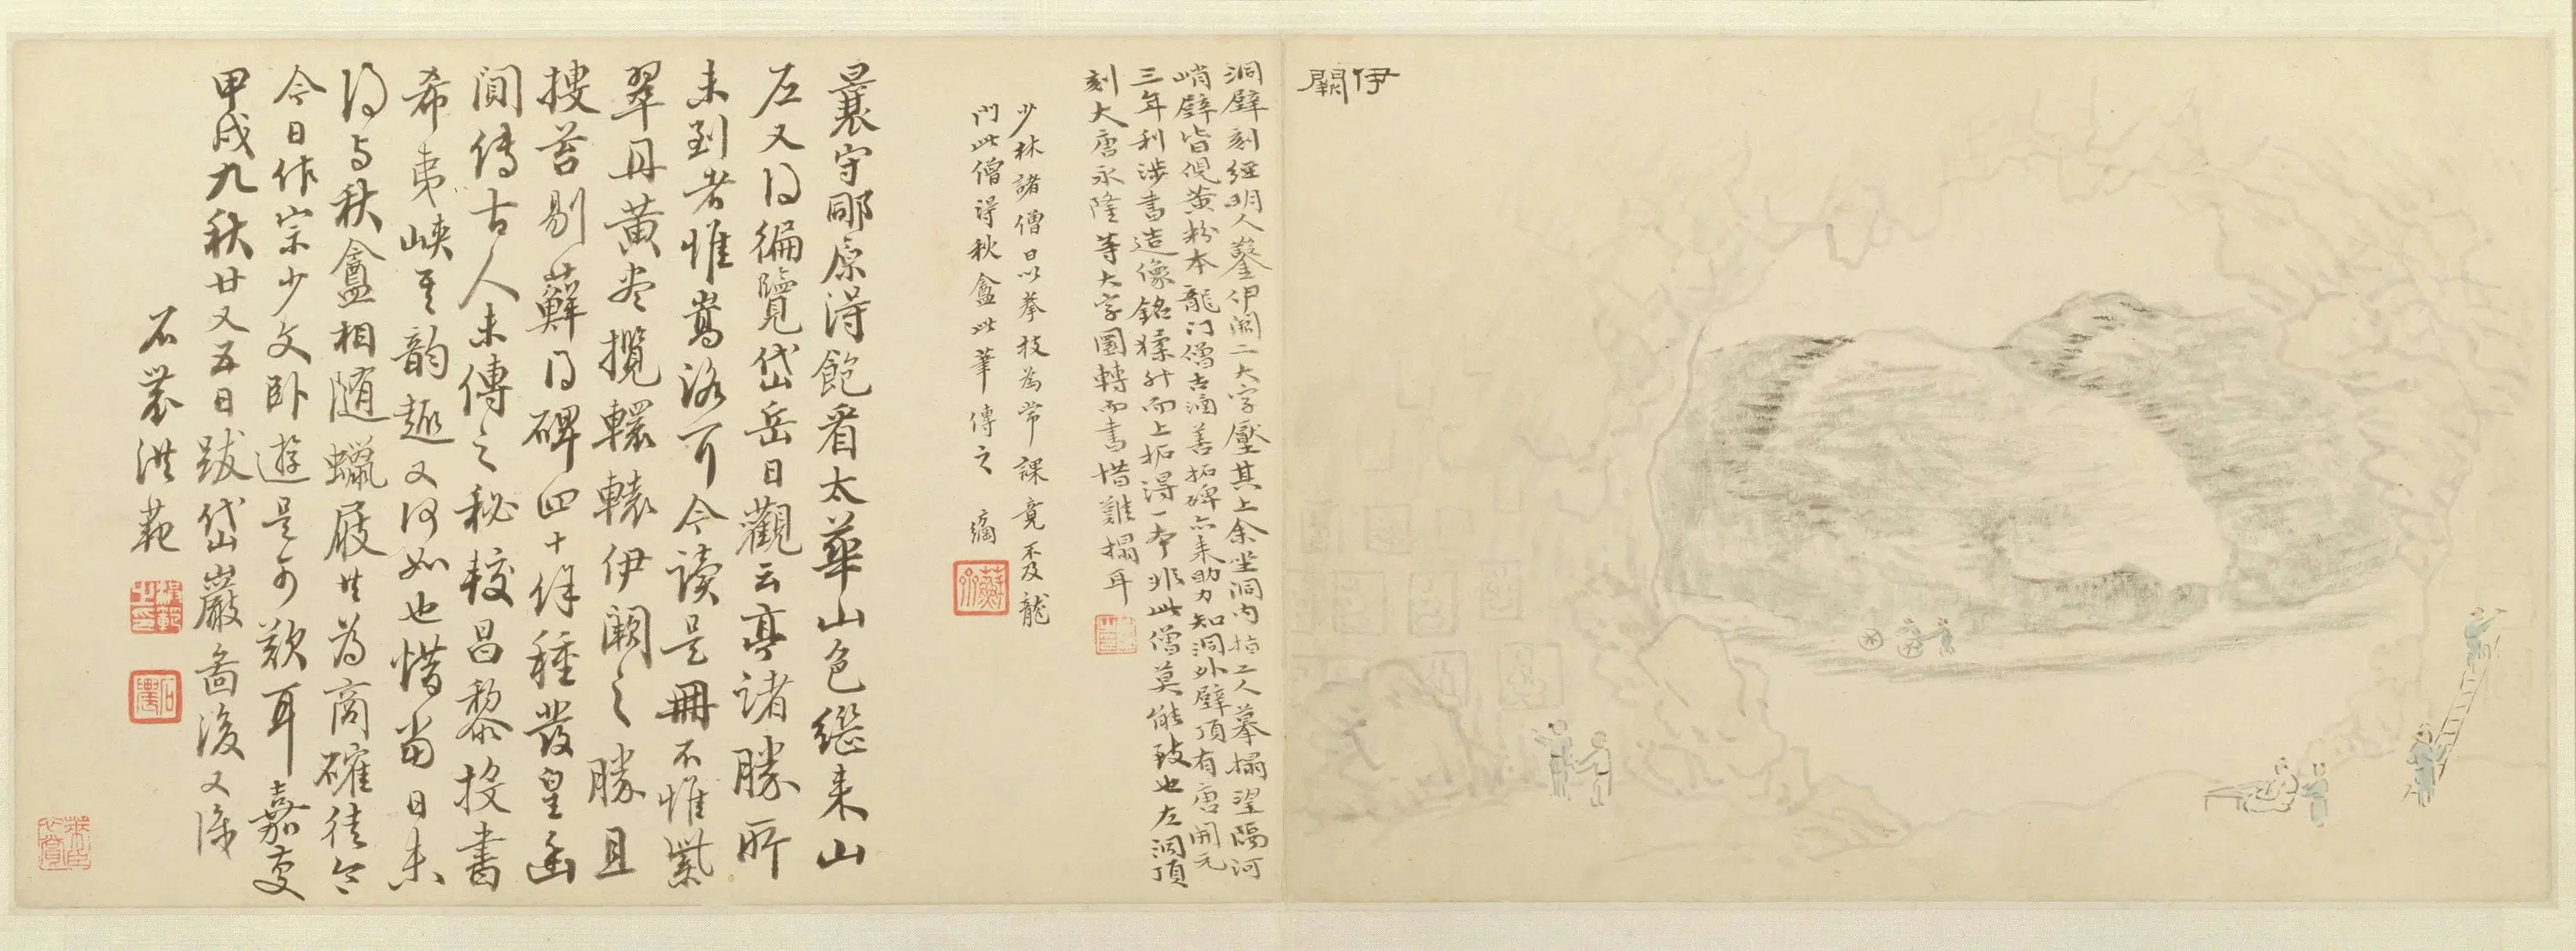 伊闕
洞壁刻經明人鑿伊闕二大字壓其上余坐洞內指工人摹搨望隔河
峭壁皆倪黃粉本龍门僧古滴善拓碑亦来助力知洞外壁頂有唐開元
三年利涉書造像銘猱升而上拓得一本非此僧莫能致也左洞頂
刻大唐永隆等大字圜轉而書惜難搨耳
少林諸僧日以拳技為常課竟不及龍
門此僧得秋盦此筆傳之 滴
曩守郿原得飽看太華山色繼来山
左又得徧覽岱岳日觀云亭諸勝所
未到者惟嵩洛耳今读是冊不惟紫
翠丹黃盡攬轘轅伊闕之勝且
搜苔剔蘚得碑四十餘種發皇幽
閒傳古人未傳之秘較昌黎投書
希夷峽其韵趣又何如也惜當日未
得与秋盦相随蠟屐共為商確徒令
今日作宗少文臥遊是可歎耳嘉慶
甲戌九秋廿又五日跋岱巖圖後又識
石農洪範